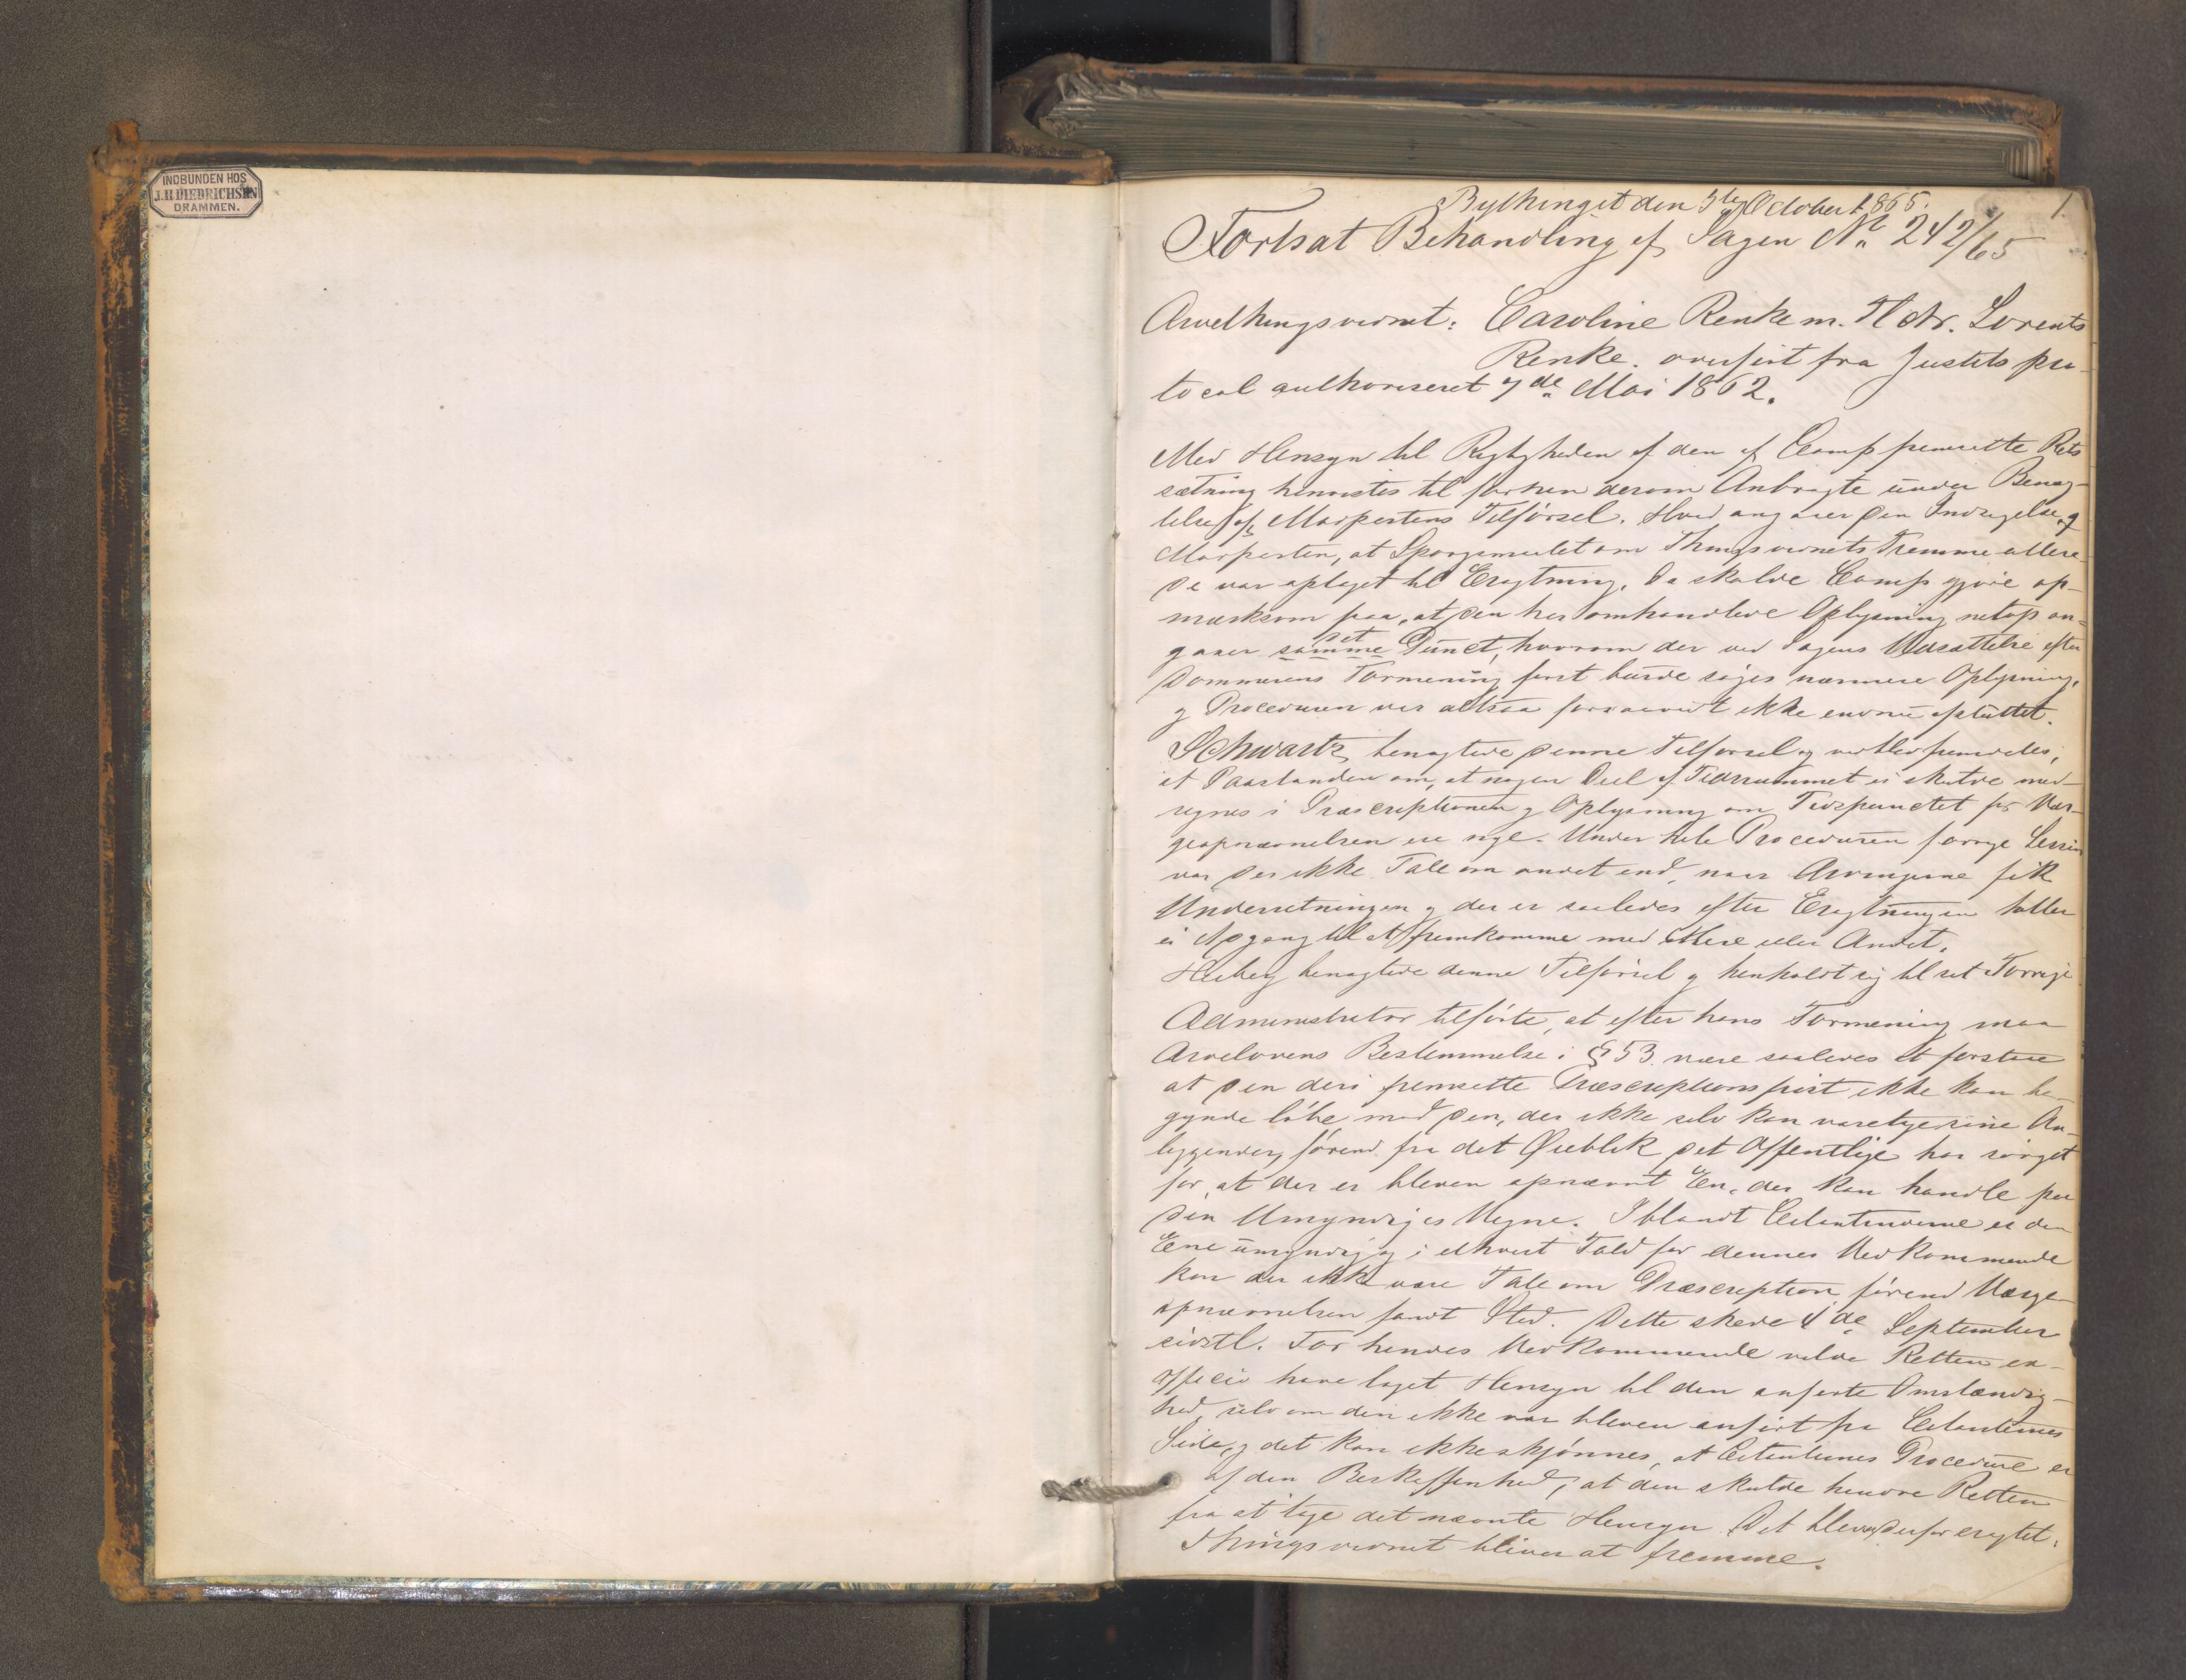 INDBUNDEN HOS
J. H. DIEDRICHSEN
DRAMMEN.
1.
Bythinget den 5te October 1865.
Fortsat Behandling af Sagen No. 242/65
Arvethingsvidnet: Caroline Renke m. Fl. ctr. Lorents
Renke. overført fra Justitspro-
tocol authoriseret 7de Mai 1862.
Med Hensyn til Rigtigheden af den af Camp fremsatte Rets
sætning henvistes til forhen derom Anbragte under Benæg-
telse af Modpartens Tilførsel. Hvad angaaer den Indsigelse af
Modparten, at Spørgsmaalet om Thingsvidnets Fremme allere-
de var optaget til Eragtning, da skulde Camp gjøre op-
mærksom paa, at den her omhandlede Oplysning netop an-
gaaer samme Punct, hvorom der ved Sagens Udsættelse efter
det
Dommerens Formening først burde søges nærmere Oplysning,
og Proceduren var altsaa forsaavidt ikke endnu afsluttet.
Schwartz benægtede denne Tilførsel og vedblev fremdeles,
at Paastanden om, at nogen Deel af Tidsrummet ei skulde med-
regnes i Præscriptionen og Oplysning om Tidspunctet for Vær-
geopnævnelsen ere nye. Under hele Proceduren forrige Session
var der ikke Tale om andet end, naar Arvingerne fik
Underretningen og der er saaledes efter Eragtningen heller
ei Adgang til at fremkomme med Mere eller Andet.
Heiberg benægtede denne Tilførsel og henholdt sig til det Forrige
Administrator tilførte, at efter hans Formening maa
Arvelovens Bestemmelse i § 53 være saaledes at forstaae
at den deri fremsatte Præscriptionsfrist ikke kan be-
gynde løbe mod den, der ikke selv kan varetage sine An-
liggender, førend fra det Øieblik det Offentlige har sørget
for, at der er bleven opnævnt En, der kan handle paa
den Umyndiges Vegne. Iblandt Citantinderne er den
Ene umyndig og i ethvert Fald for dennes Vedkommende
kan der ikke være Tale om Præscription førend Værge-
opnævnelsen fandt Sted. Dette skede 4de September
sidstl. For hendes Vedkommende vilde Retten ex-
officio have taget Hensyn til den anførte Omstændig-
hed, selv om den ikke var bleven anført fra Citantinernes
Side, og det kan ikke skjønnes, at Citantinernes Procedure er
af den Beskaffenhed, at den skulde hindre Retten
fra at tage det nævnte Hensyn. Det blev derfor eragtet:
Thingsvidnet bliver at fremme.